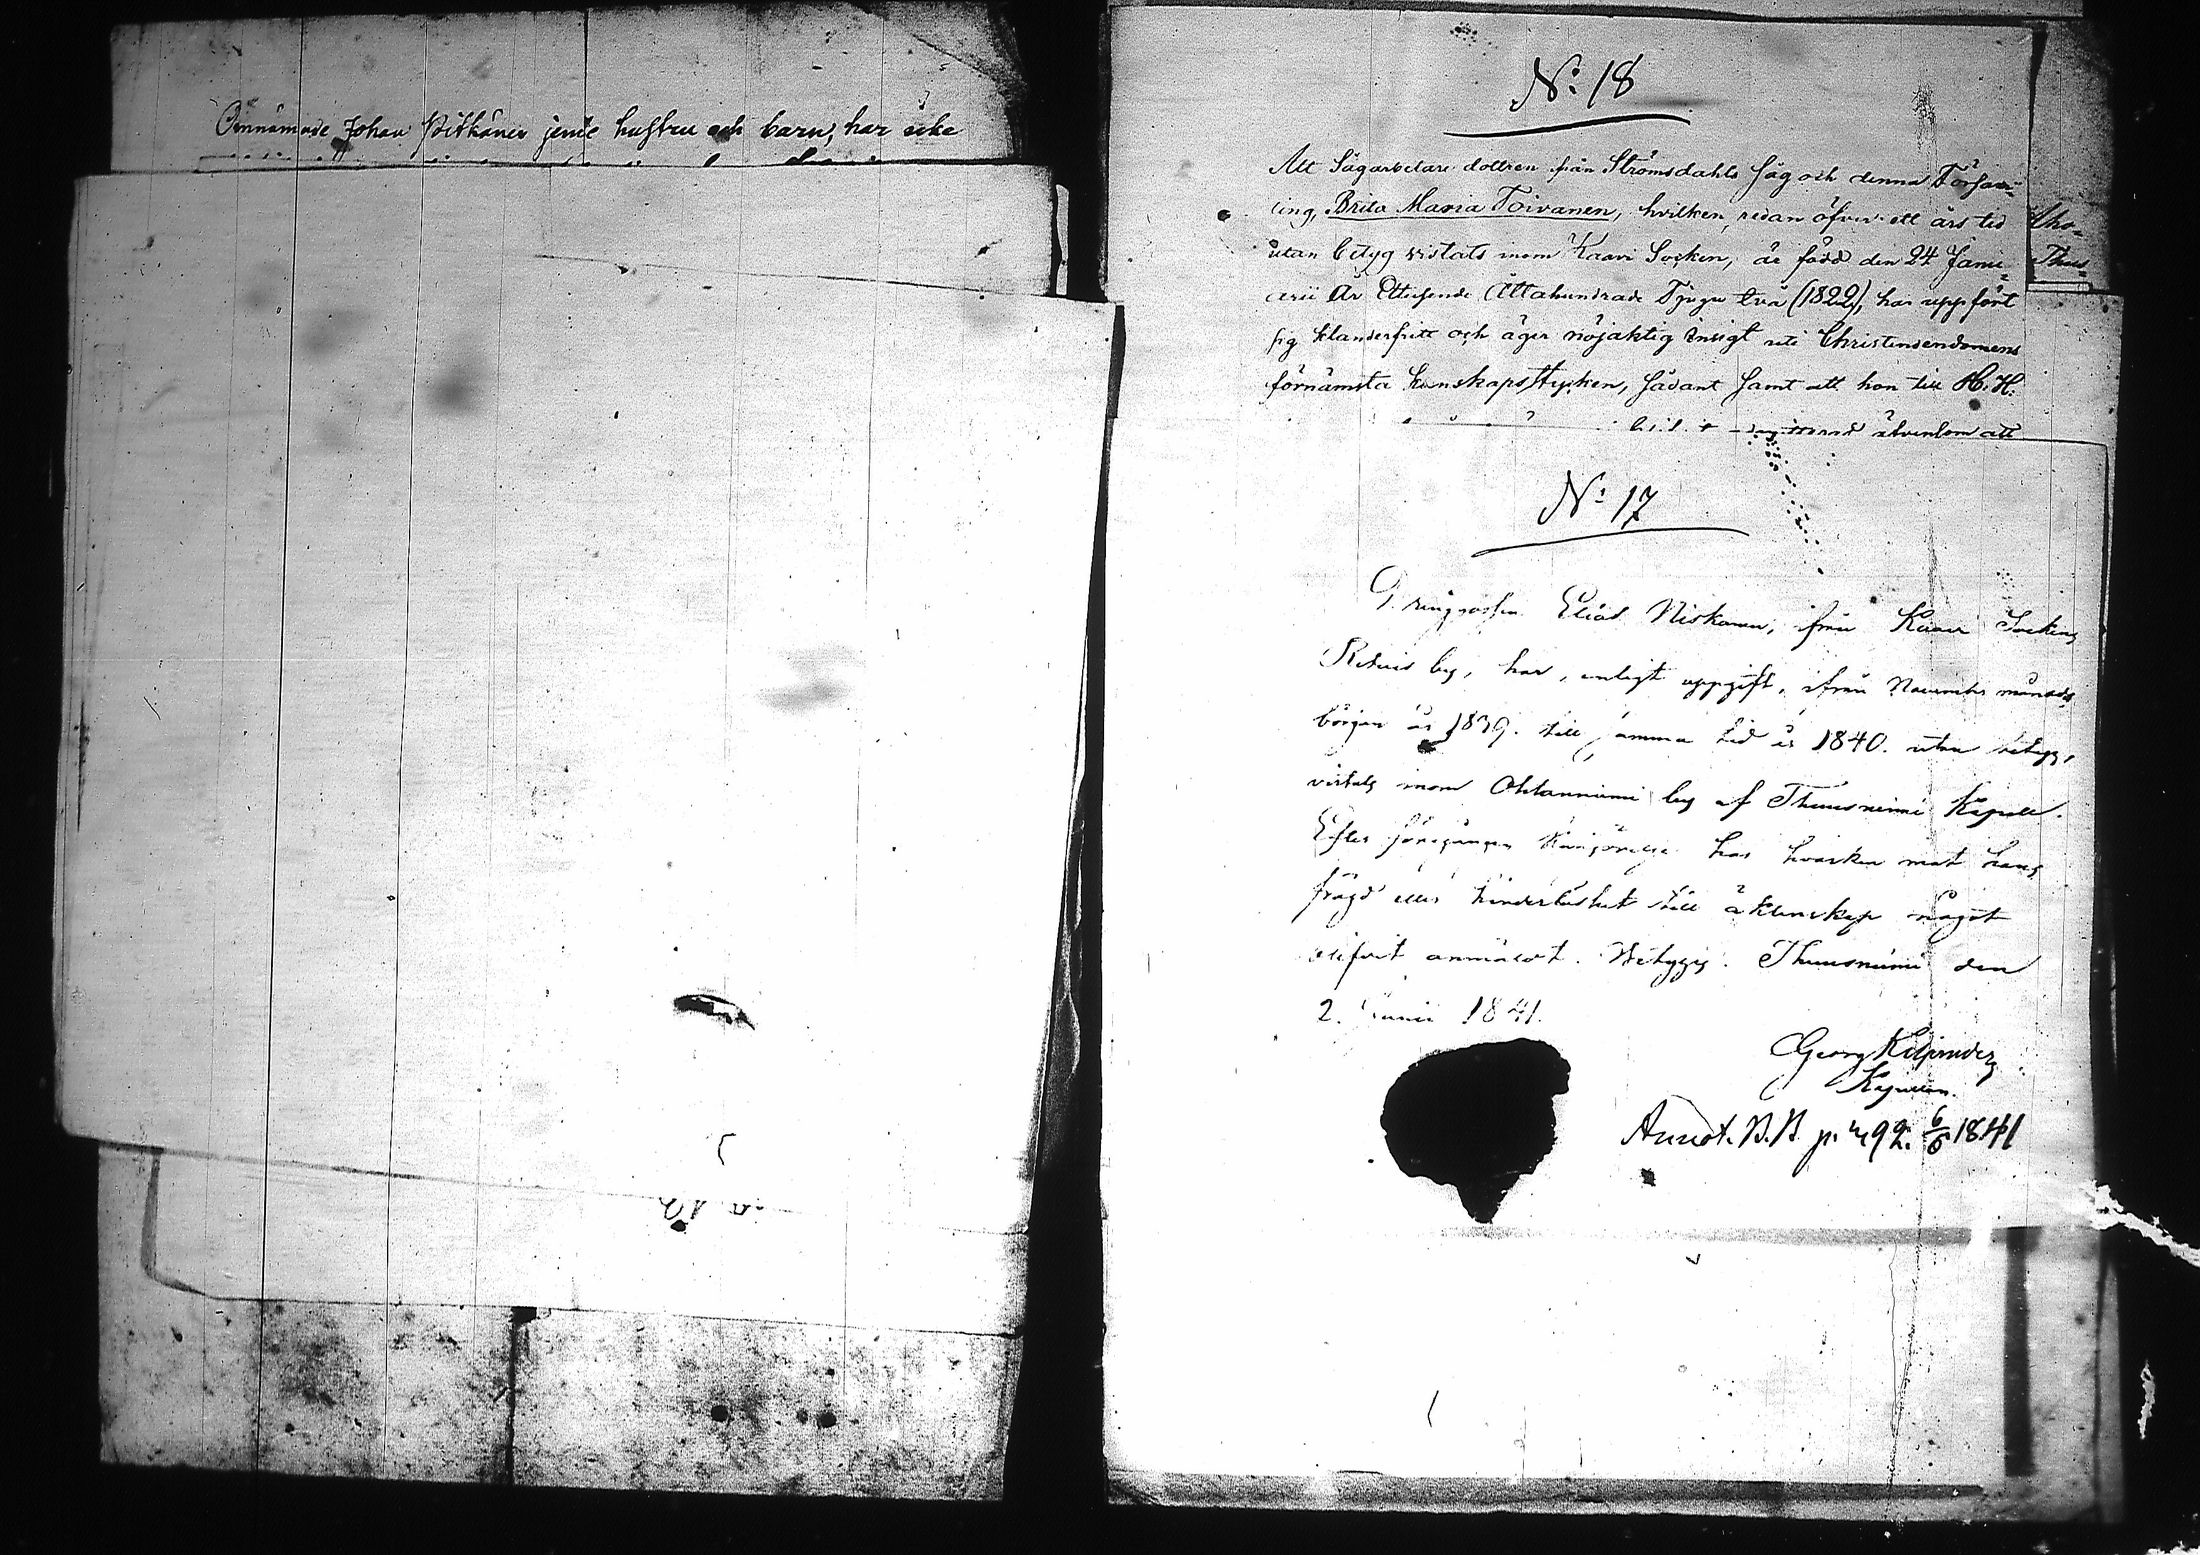 Omnämnde Johan Pitkänen jemte hustru och barn, har icke
N: 18
Att Sågarbetare dottren från Strömsdahls Såg och denna Försam=
ling, Brita Maria Toivanen, hvilken, redan öfver ett års tid
utan betyg vistats inom Kaavi Socken, är född den 24 Janu=
arii År Ettusende Åttahundrade Tjugu två (1822), har uppfört
sig klanderfritt och äger nöjaktig insigt uti Christendomens
förnämsta kunskapsstycken, sådant samt att hon till H. H.
äfvensom att
Tho=
Thus=
N: 17
Drängen Elias Niskanen, från Kaavi Sockens
by, har, enligt uppgift, ifrån November månads
början år 1839. till samma tid år 1840. utan betyg,
vistats inom Ohtaanniemi by af Thuusniemi Kapell.
Efter föregången kungörelse har hvarken mot hans
frägd eller hinderlöshet till äktenskap något
blifvit anmäldt. Betygar. Thuusniemi den
2. Junii 1841.
Georg
Kapellan.
Annot. B.B. p. 492. 6/6 1841